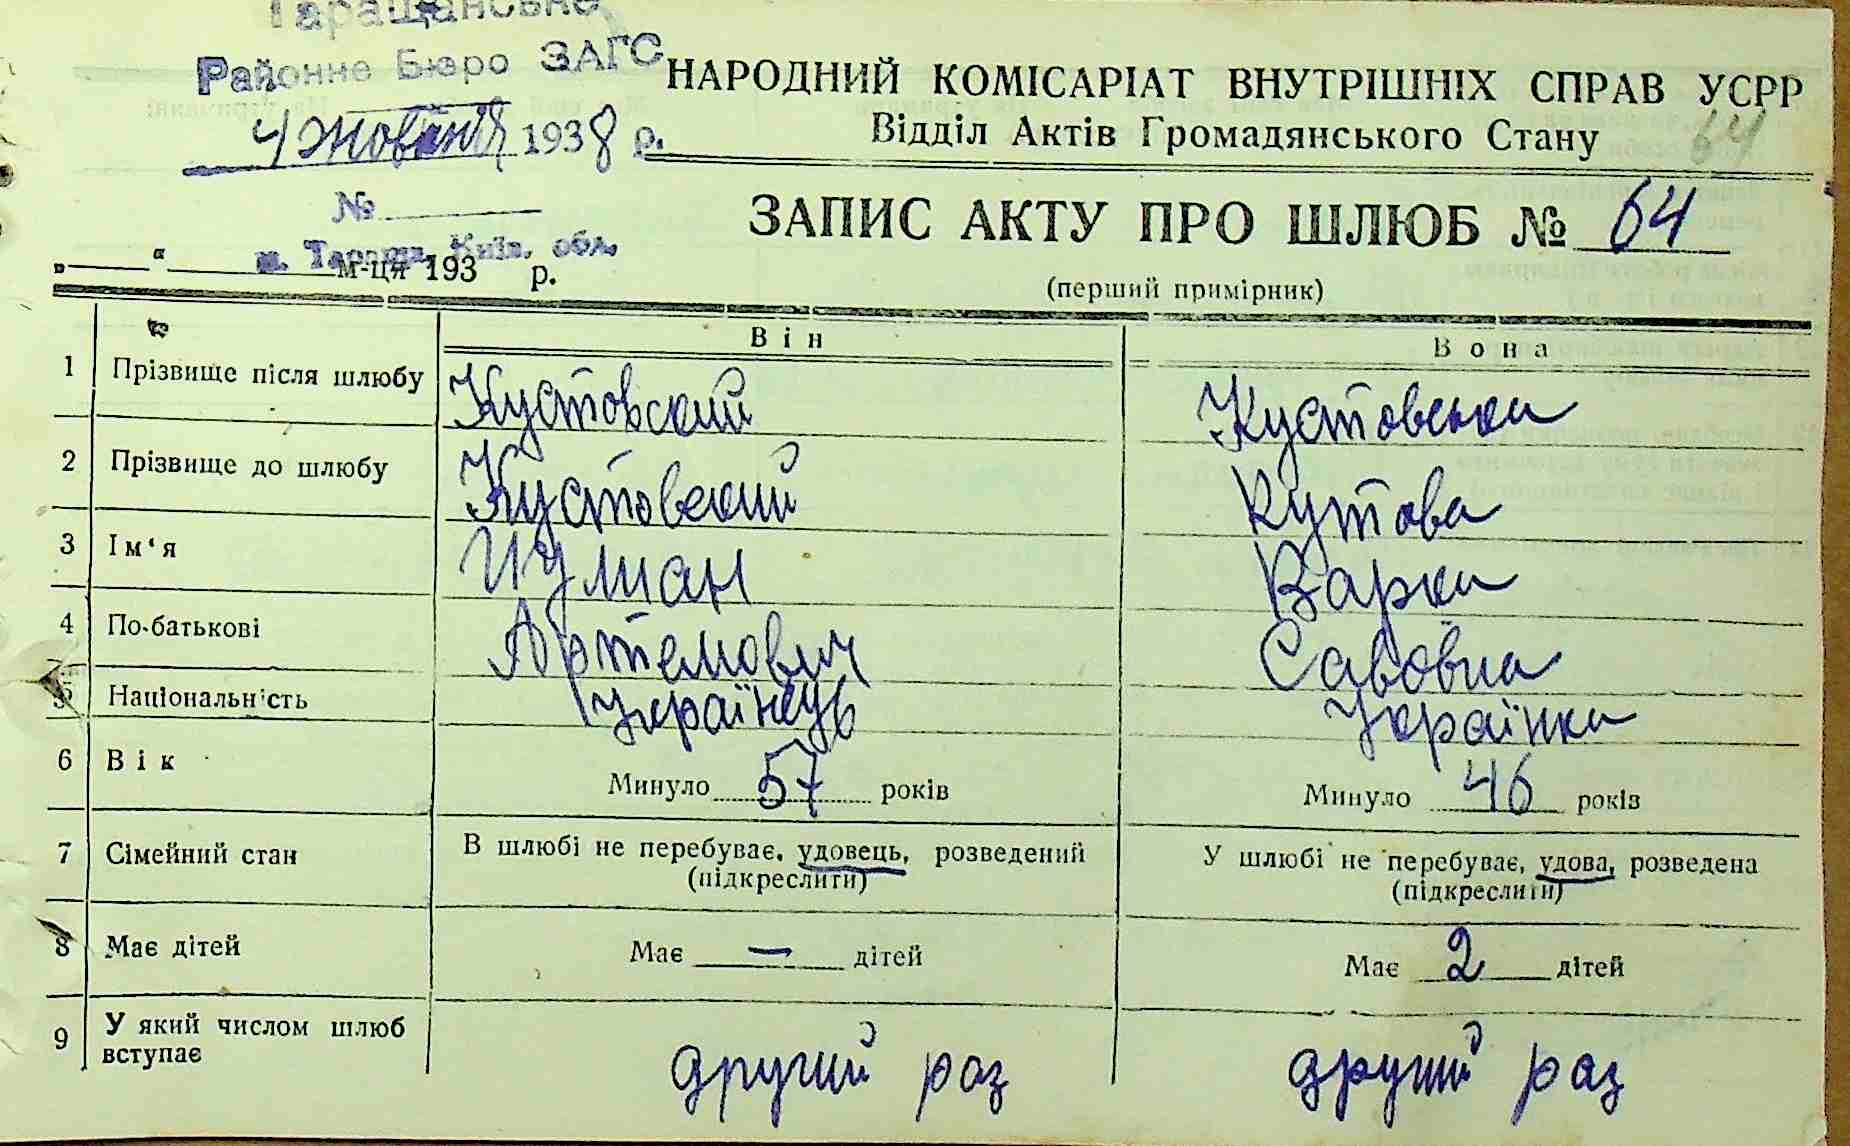 Таращанське
Районне Бюро ЗАГС
4 жовтня 1938 р.
№
м. Тараща, Київ. обл.
„ “ м-ця 193 р.
НАРОДНИЙ КОМІСАРІАТ ВНУТРІШНІХ СПРАВ УСРР
Відділ Актів Громадянського Стану 64
ЗАПИС АКТУ ПРО ШЛЮБ № 64
(перший примірник)
Він Вона
1 Прізвище після шлюбу Кустовский Кустовська
2 Прізвище до шлюбу Кустовский Кутова
3 Ім‘я Иулиан Варка
4 По-батькові Артемович Савовна
5 Національність Українець Українка
6 Вік Минуло 57 років Минуло 46 років
7 Сімейний стан В шлюбі не перебуває, удовець, розведений У шлюбі не перебуває, удова, розведена
(підкреслити) (підкреслити)
8 Має дітей Має — дітей Має 2 дітей
9 У який числом шлюб вступає другий раз другий раз